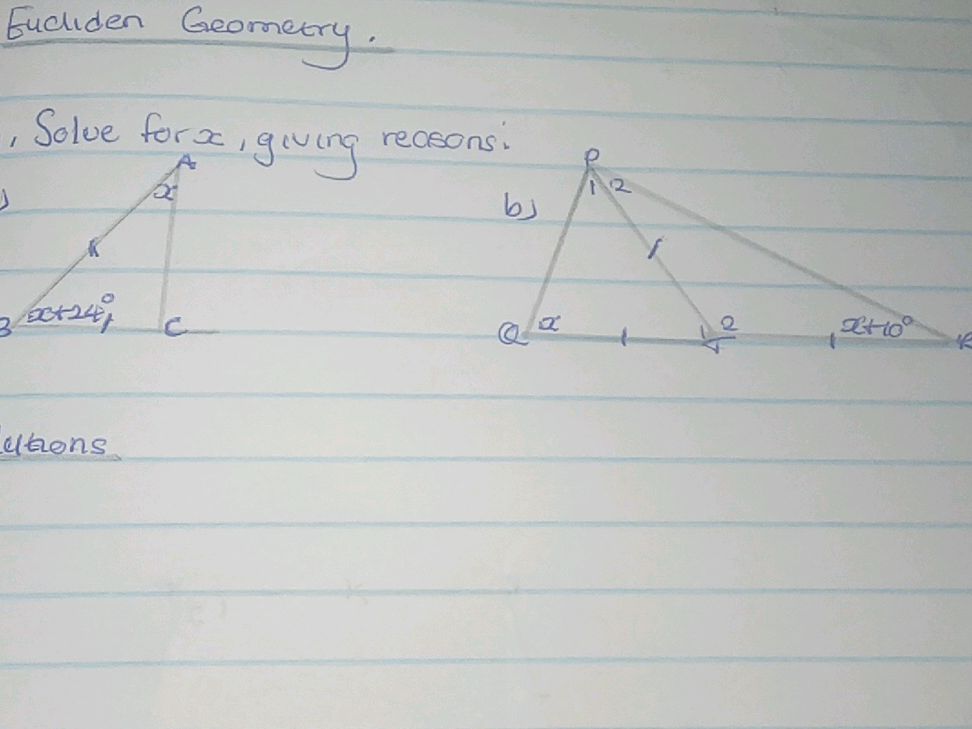 Eucliden Geometry.
, Solve for x, giving reasons:
A
x
B x+24° C
b)
P
1 2
Q x 1 2 x+10° R
T
lutions